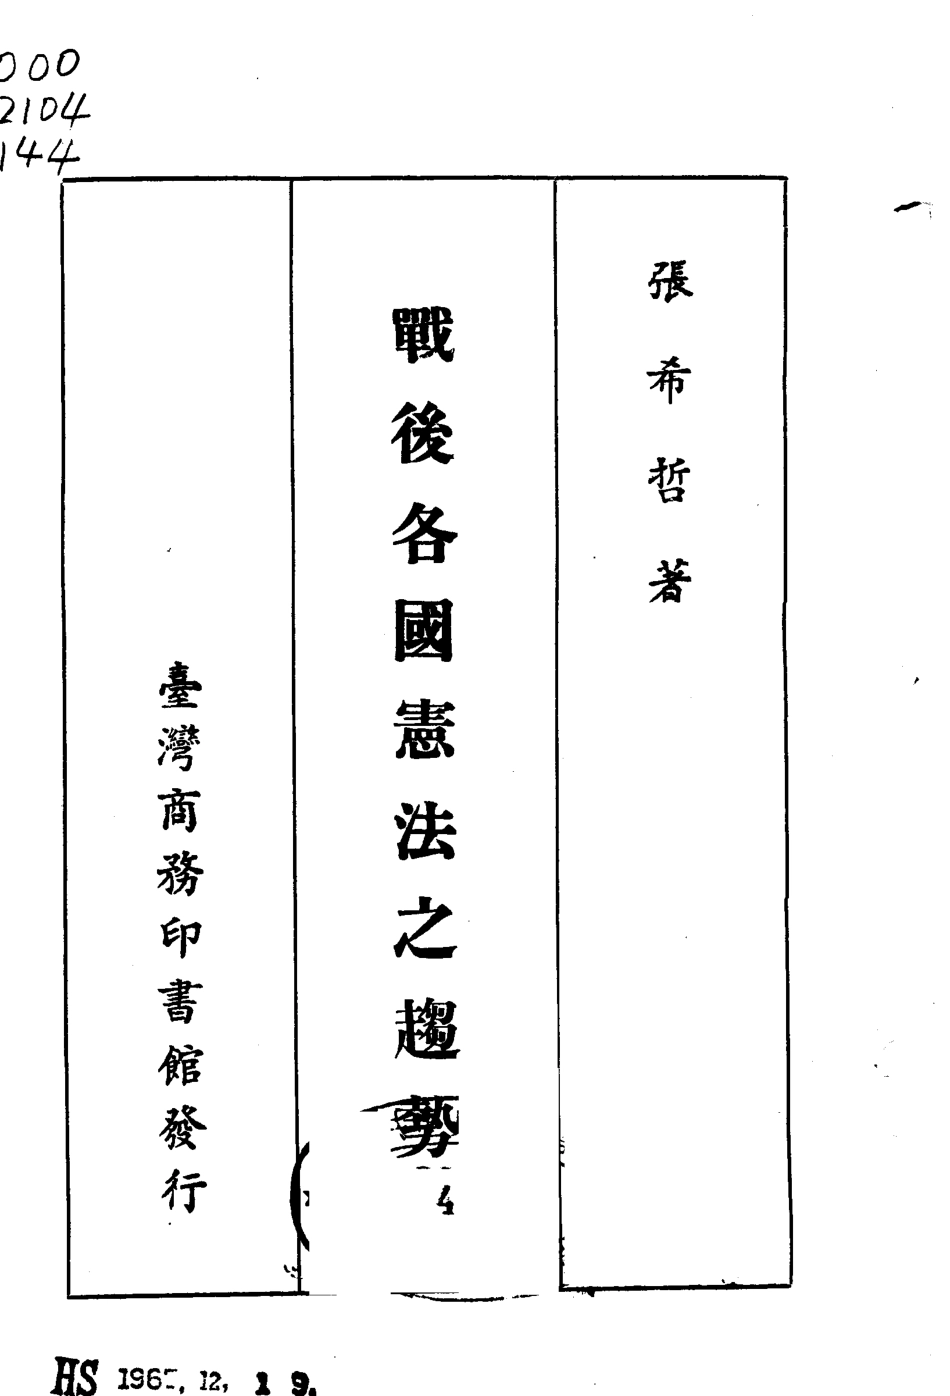 000
2104
144
張希哲著
戰後各國憲法之趨勢
4
臺灣商務印書館發行
HS 12, 19.